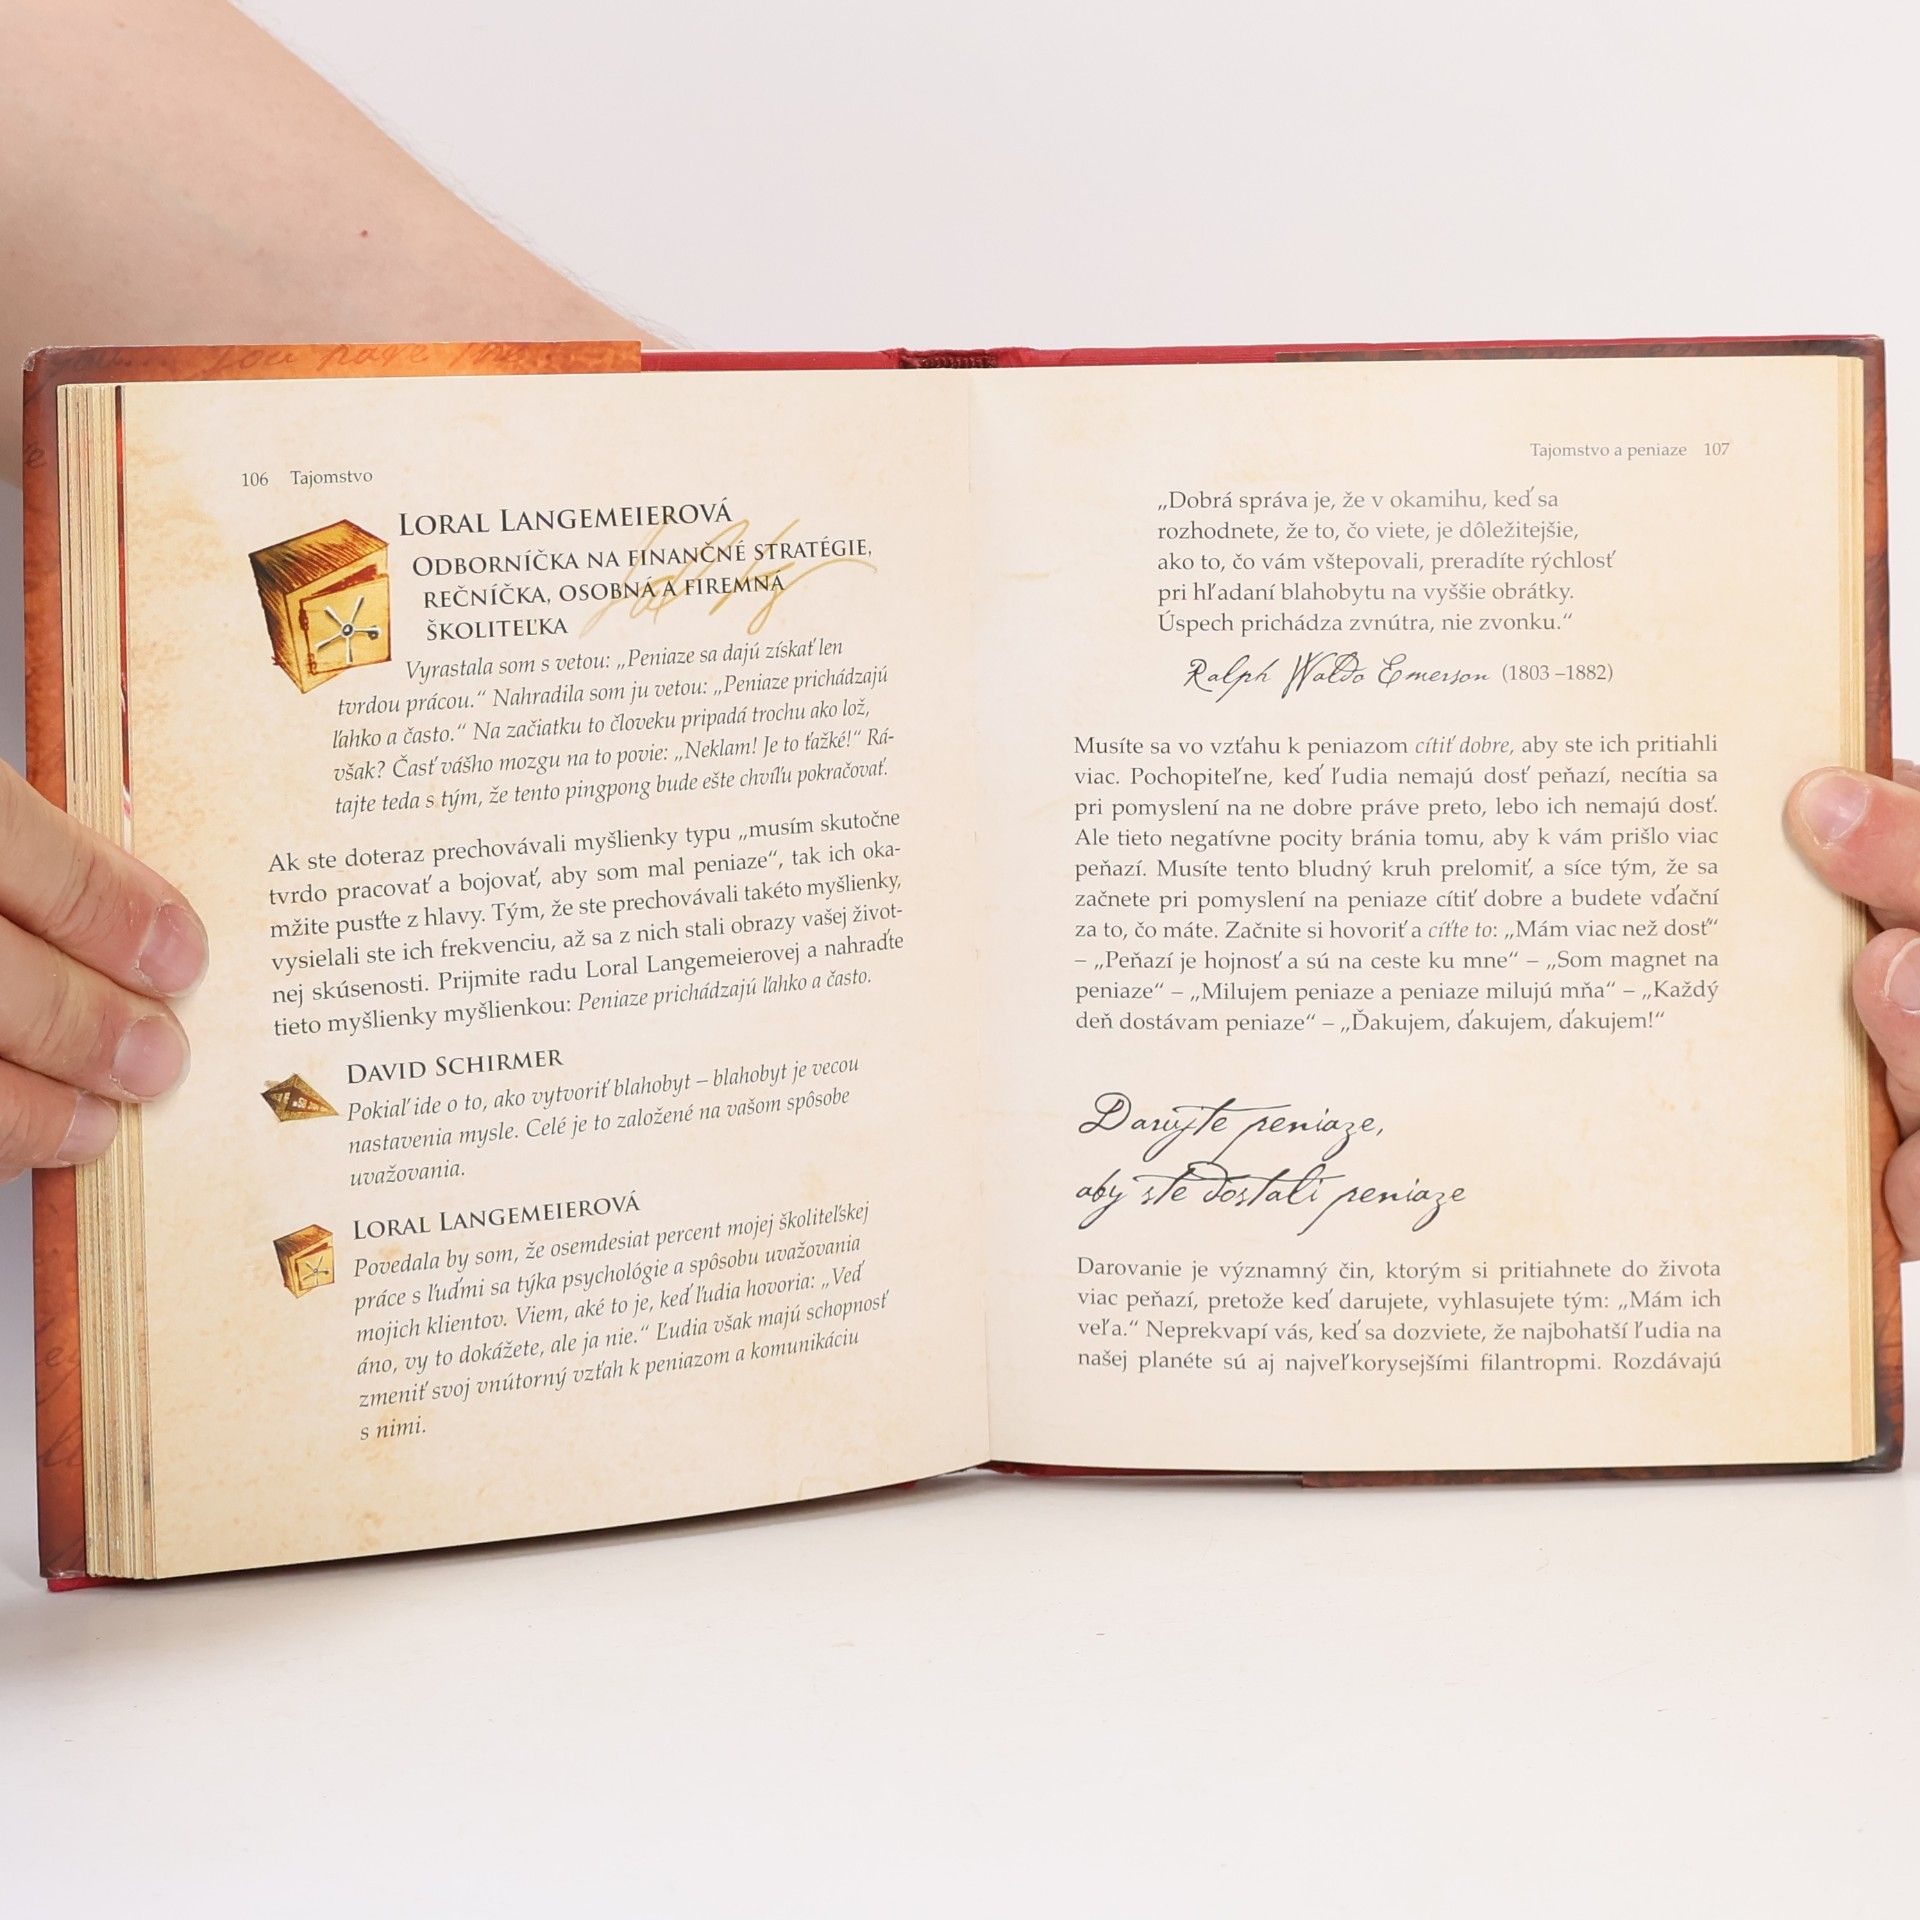 106 Tajomstvo
LORAL LANGEMEIEROVÁ
ODBORNÍČKA NA FINANČNÉ STRATÉGIE,
REČNÍČKA, OSOBNÁ A FIREMNÁ
ŠKOLITEĽKA
Vyrastala som s vetou: „Peniaze sa dajú získať len
tvrdou prácou.“ Nahradila som ju vetou: „Peniaze prichádzajú
ľahko a často.“ Na začiatku to človeku pripadá trochu ako lož,
však? Časť vášho mozgu na to povie: „Neklam! Je to ťažké!“ Rá-
tajte teda s tým, že tento pingpong bude ešte chvíľu pokračovať.
Ak ste doteraz prechovávali myšlienky typu „musím skutočne
tvrdo pracovať a bojovať, aby som mal peniaze“, tak ich oka-
mžite pusťte z hlavy. Tým, že ste prechovávali takéto myšlienky,
vysielali ste ich frekvenciu, až sa z nich stali obrazy vašej život-
nej skúsenosti. Prijmite radu Loral Langemeierovej a nahraďte
tieto myšlienky myšlienkou: Peniaze prichádzajú ľahko a často.
DAVID SCHIRMER
Pokiaľ ide o to, ako vytvoriť blahobyt – blahobyt je vecou
nastavenia mysle. Celé je to založené na vašom spôsobe
uvažovania.
LORAL LANGEMEIEROVÁ
Povedala by som, že osemdesiat percent mojej školiteľskej
práce s ľuďmi sa týka psychológie a spôsobu uvažovania
mojich klientov. Viem, aké to je, keď ľudia hovoria: „Veď
áno, vy to dokážete, ale ja nie.“ Ľudia však majú schopnosť
zmeniť svoj vnútorný vzťah k peniazom a komunikáciu
s nimi.
Tajomstvo a peniaze 107
„Dobrá správa je, že v okamihu, keď sa
rozhodnete, že to, čo viete, je dôležitejšie,
ako to, čo vám vštepovali, preradíte rýchlosť
pri hľadaní blahobytu na vyššie obrátky.
Úspech prichádza zvnútra, nie zvonku.“
Ralph Waldo Emerson (1803 –1882)
Musíte sa vo vzťahu k peniazom cítiť dobre, aby ste ich pritiahli
viac. Pochopiteľne, keď ľudia nemajú dosť peňazí, necítia sa
pri pomyslení na ne dobre práve preto, lebo ich nemajú dosť.
Ale tieto negatívne pocity bránia tomu, aby k vám prišlo viac
peňazí. Musíte tento bludný kruh prelomiť, a síce tým, že sa
začnete pri pomyslení na peniaze cítiť dobre a budete vďační
za to, čo máte. Začnite si hovoriť a cíťte to: „Mám viac než dosť“
– „Peňazí je hojnosť a sú na ceste ku mne“ – „Som magnet na
peniaze“ – „Milujem peniaze a peniaze milujú mňa“ – „Každý
deň dostávam peniaze“ – „Ďakujem, ďakujem, ďakujem!“
Darujte peniaze,
aby ste dostali peniaze
Darovanie je významný čin, ktorým si pritiahnete do života
viac peňazí, pretože keď darujete, vyhlasujete tým: „Mám ich
veľa.“ Neprekvapí vás, keď sa dozviete, že najbohatší ľudia na
našej planéte sú aj najveľkorysejšími filantropmi. Rozdávajú